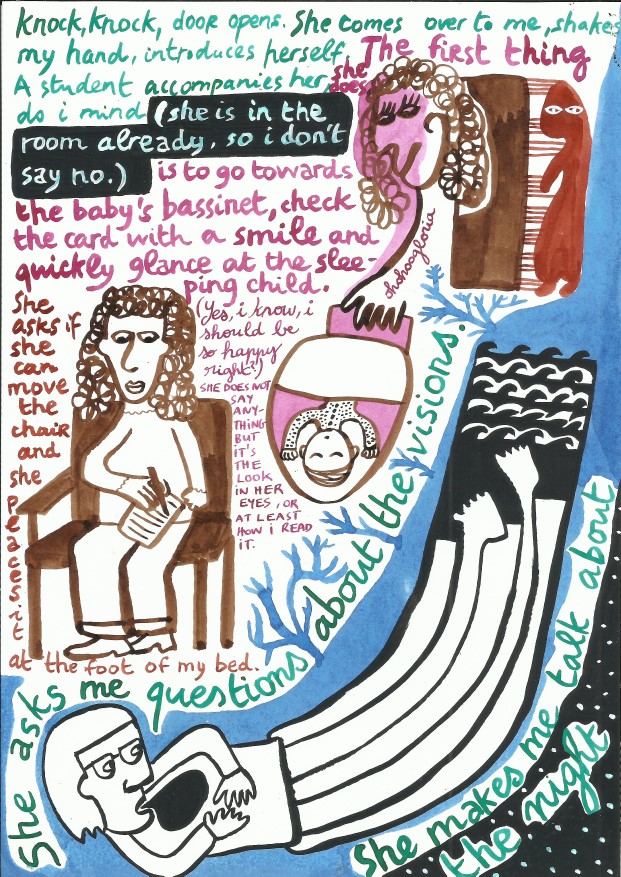 Knock, Knock, door opens. She comes over to me, shakes
my hand, introduces herself.
A student accompanies her,
do i mind (she is in the
room already, so i don't
say no.)
The first thing
she
does
is to go towards
the baby's bassinet, check
the card with a smile and
quickly glance at the slee-
ping child.
(Yes, i know, i
should be
so happy
right?)
SHE DOES NOT
SAY
ANY-
THING
BUT
IT'S
THE
LOOK
IN HER
EYES, OR
AT LEAST
HOW i READ
IT.
She
asks if
she
can
move
the
chair
and
she
peacesit
at the foot of my bed.
She asks me questions about the visions.
She makes me talk about
the night